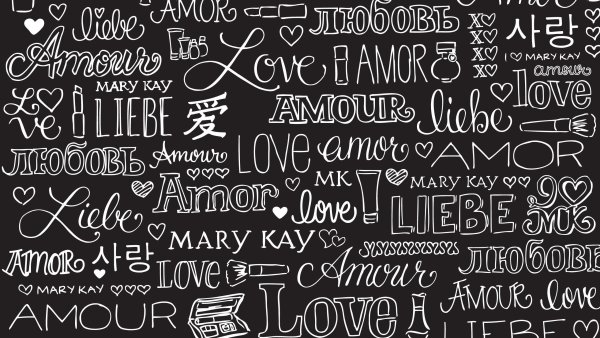 liebe
ЛЮБОВЬ
XO
사랑
Amour
Love
AMOR
XO
I ♡ MARY KAY
MARY KAY
XO
amour
Love
LIEBE
爱
AMOUR
liebe
love
ЛЮБОВЬ
Amour
LOVE
amor
AMOR
Liebe
Amor
MK
MARY KAY
love
LIEBE
MARY KAY
AMOR
사랑
LOVE
Amour
ЛЮБОВЬ
MARY KAY
AMOUR
love
AMOUR
Love
LIEBE